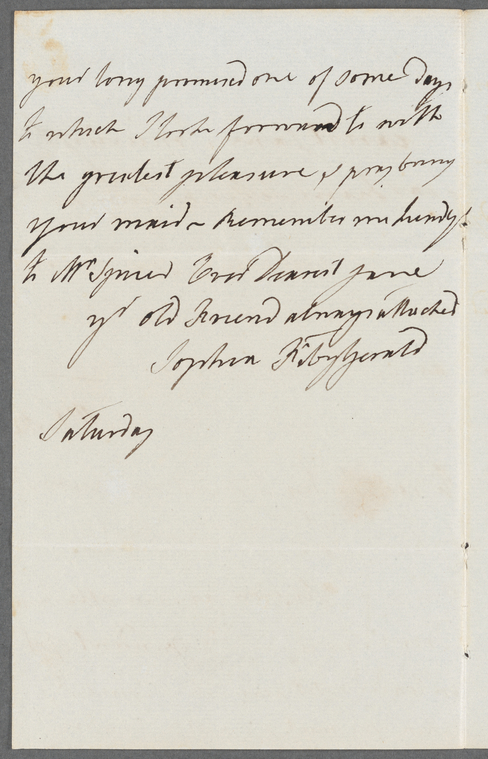 your long promised one of some days
to which I look forward to with
the greatest pleasure, & pray bring
your maid ~ Remember me kindly
to Mr Spicer Ever Dearest Jane
yr old Friend always attached
Sophia FitzGerald
Saturday